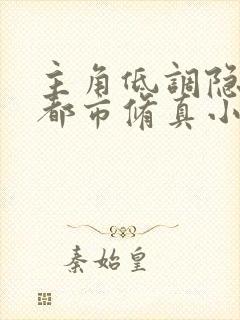 主角低調隐
都市脩真小
秦始皇